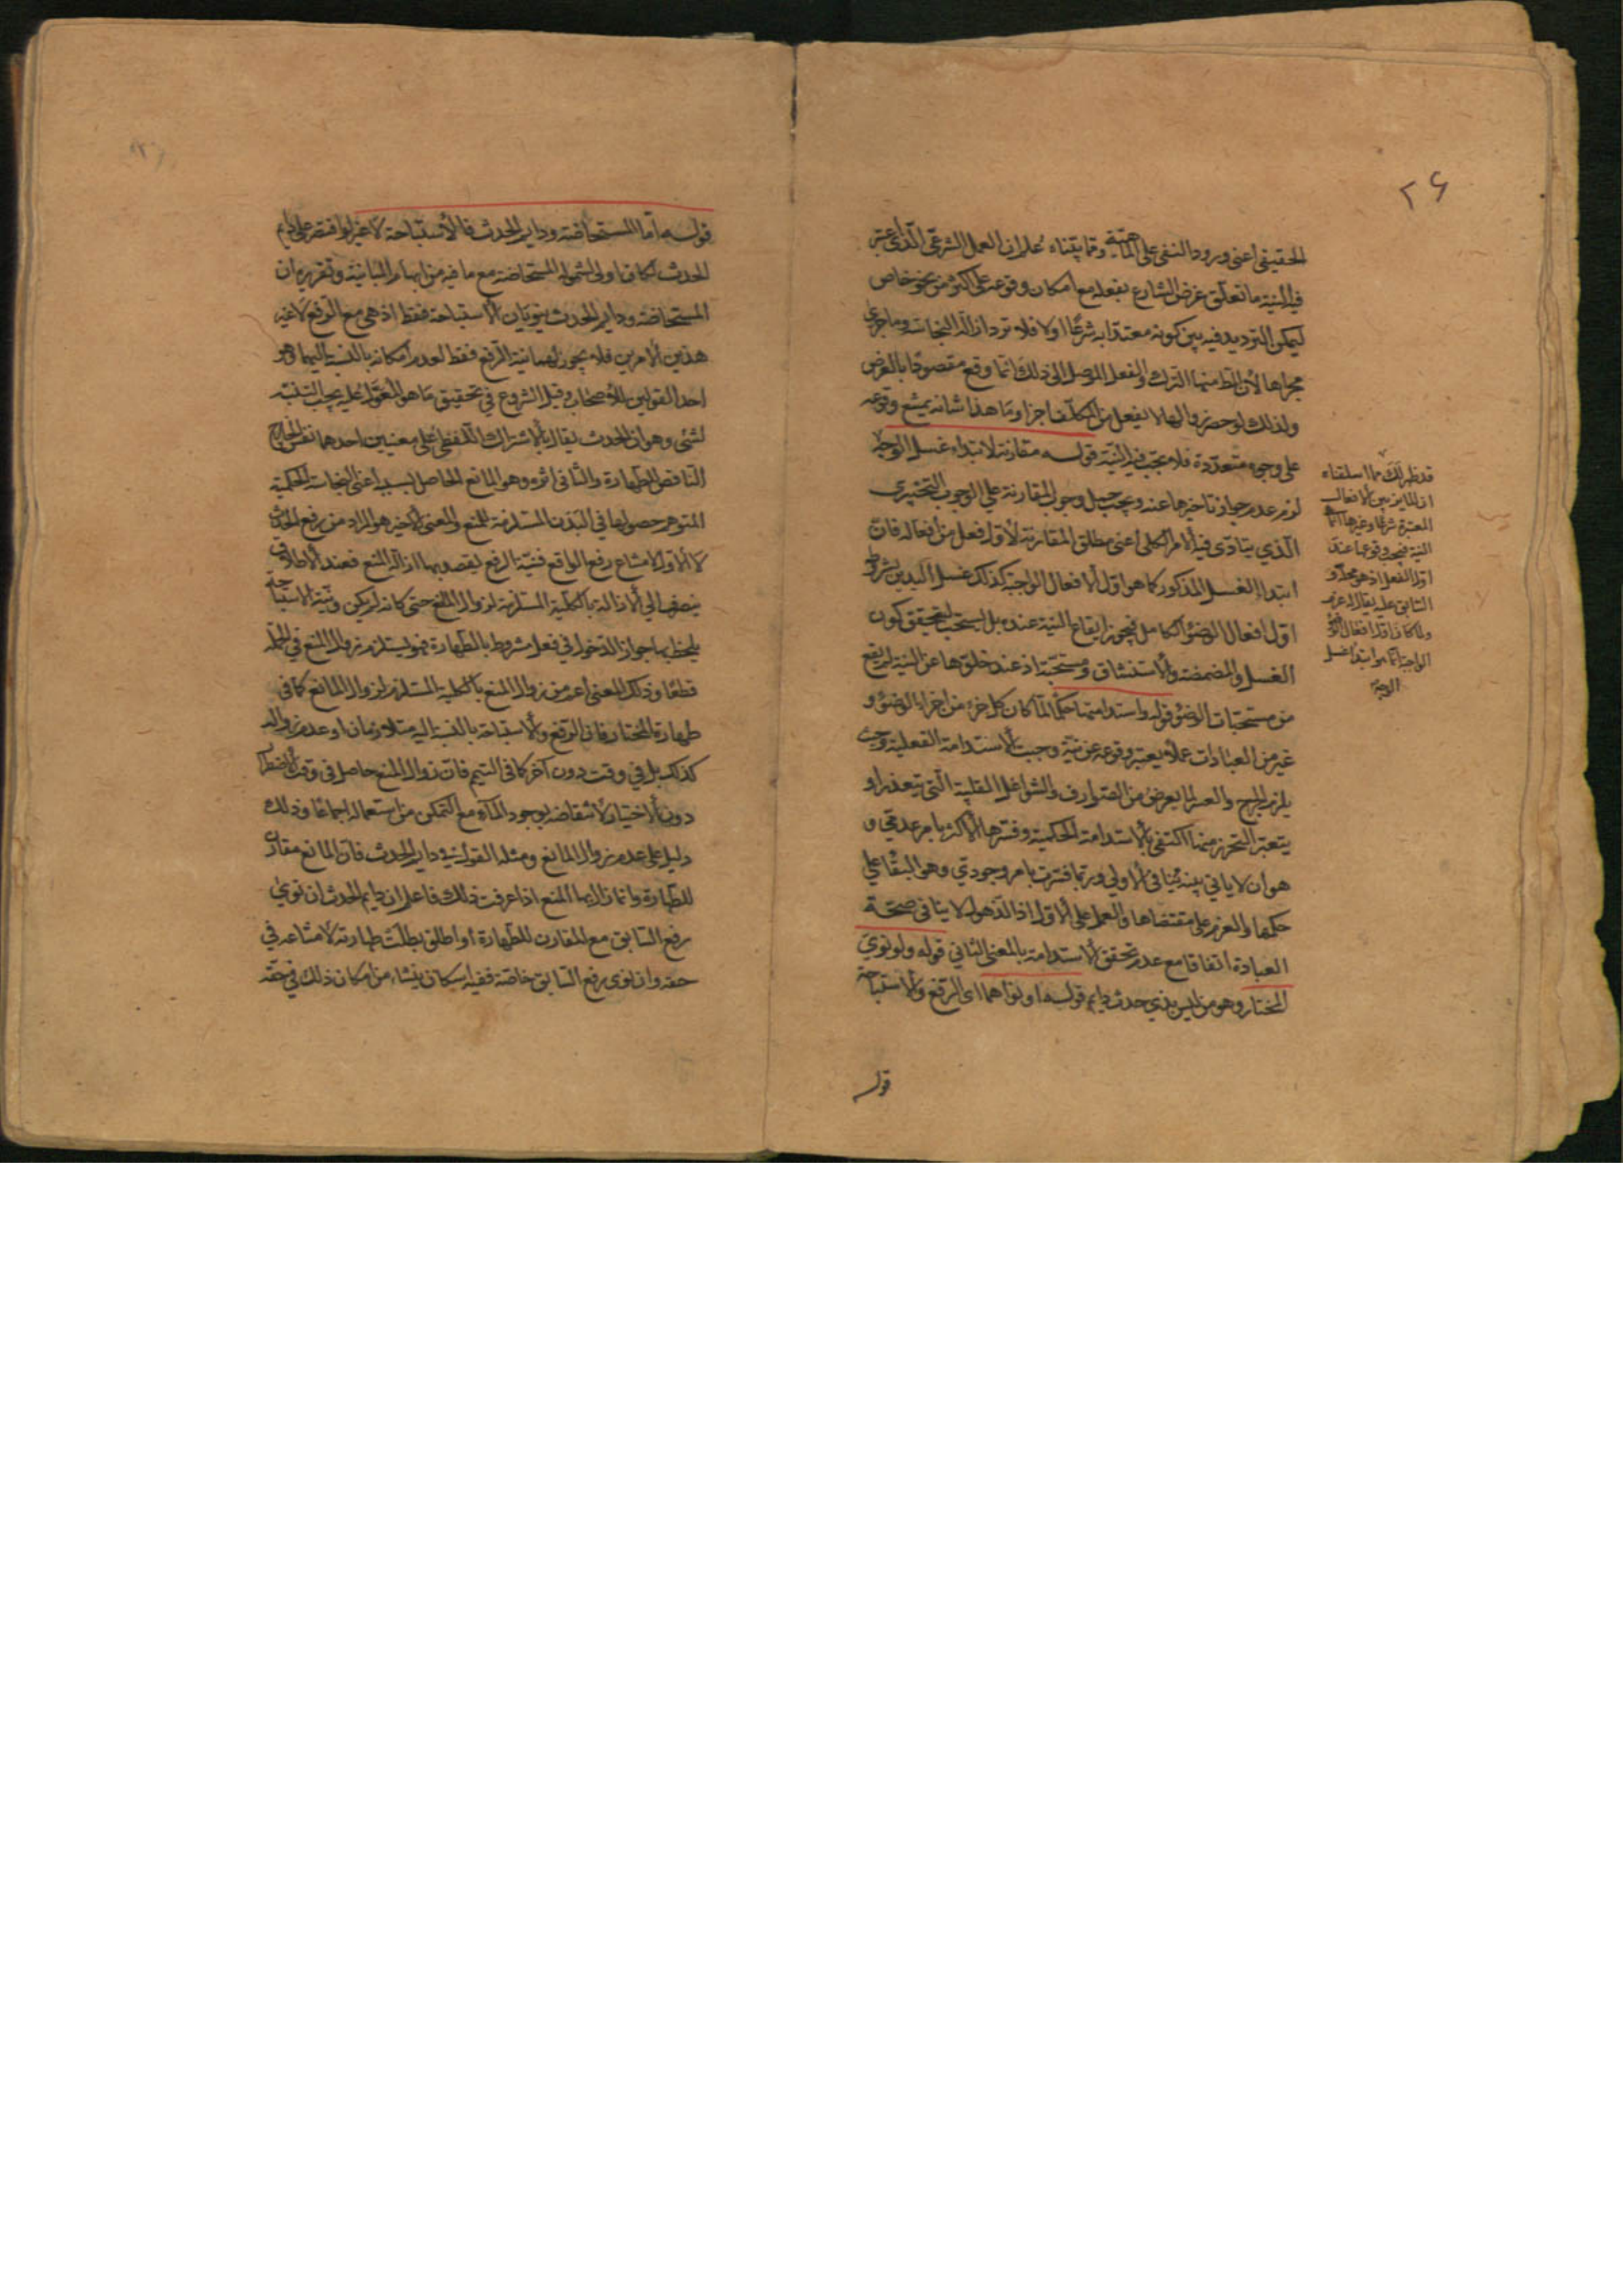 ٢۶
الحقيقي اعني ورود النفي على الماهية وقما بيناه علم ان العمل الشرعي الذي اعتبر
فيه النية ما تعلق غرض الشارع بفعله مع امكان وقوعه على اكثر من نحو خاص
ليمكن الترديد فيه بين كونه معتدا به شرعا اولا فلا ترد ازالة النجاسة وما جرى
مجراها لان المط منها الترك والفعل الموصل الى ذلك انما وقع مقصودا بالعرض
ولذلك لو حصر زوالها لا بفعل من المكلف اجزا وما هذا شانه يمتنع وقوعه
على وجوه متعددة فلا يجب فيه النية قوله مقارنة لابتداء غسل الوجه
لزم عدم جواز تاخيرها عنه ويجب وجوب المقارنة على الوجوب التخييري
الذي يتادى فيه الامر الكلي اعني مطلق المقارنة لاول فعل من افعاله فان
ابتداء الغسل المذكور كما هو اول الافعال الواجبة كذلك غسل اليدين بشروط
اول افعال الوضوء الكامل فيجوز ايقاع النية عنده بل يستحب ليتحقق كون
الغسل والمضمضة والاستنشاق ومستحبة اذ عند خلوها عن النية لم يقع
من مستحبات الوضوء قوله واستدامتها حكما لما كان كل جزء من اجزاء الوضوء و
غيره من العبادات عملا يعتبر وقوعه عن نية وجبت الاستدامة الفعلية وحيث
يلزم الحرج والعسر لما يعرض من الصوارف والشواغل القلبية التي يتعذر او
يتعسر التحرز منها اكتفى بالاستدامة الحكمية وفسرها الاكثر بامر عدمي و
هو ان لا ياتي بنية تنافي الاولى وربما فسرت بامر وجودي وهو البقاء على
حكمها والعزم على مقتضاها والعمل على الاول اذ الذهول لا ينافي صحة
العبادة اتفاقا مع عدم تحقق الاستدامة بالمعنى الثاني قوله ولو نوى
المختار وهو من ليس بذي حدث دايم قوله او نواهما اى الرفع والاستباحة
قوله
قد ظهر لك مما اسلفناه
ان المايز بين الافعال
المعتبرة شرعا وغيرها انما
النية فيجب وقوعها عند
اول الفعل اذ هو محله و
السابق عليه يقال له عزم
ولما كان اول افعال الوضوء
الواجبة انما هو ابتداء غسل
الوجه
قوله اما المستحاضة ودايم الحدث فالاستباحة لا غير لو اقتصر على دايم
الحدث لكان اولى لشموله المستحاضة مع ما فيه من ايهام المباينة وتقريره ان
المستحاضة ودايم الحدث ينويان الاستباحة فقط اذ هي مع الرفع لا غير
هذين الامرين فلا يجوز لهما نية الرفع فقط لعدم امكانه بالنسبة اليهما وهو
احد القولين للاصحاب وقبل الشروع في تحقيق ما هو المعول عليه يجب التنبيه
لشئ وهو ان الحدث يقال بالاشتراك اللفظي على معنيين احدهما نفس الخارج
الناقض للطهارة والثاني اثره وهو المانع الحاصل بسببه اعني النجاسة الحكمية
المتوهم حصولها في البدن المستلزمة للمنع والمعنى الاخير هو المراد من رفع الحدث
لا الاول لامتناع رفع الواقع فنية الرفع يقصد بها ازالة المنع فعند الاطلاق
ينصرف الى الازالة بالكلية المستلزمة لزوال المانع حتى كانه لم يكن ونية الاستباحة
يلحظ بها جواز الدخول في فعل مشروط بالطهارة فهو يستلزم زوال المنع في الجملة
قطعا وذلك المعنى اعم من زوال المنع بالكلية المستلزم لزوال المانع كما في
طهارة المختار فان الرفع والاستباحة بالنسبة اليه متلازمان او عدم زواله
كذلك بل في وقت دون آخر كما في التيمم فان زوال المنع حاصل في وقت الاضطرار
دون الاختيار لانتقاضه بوجود الماء مع التمكن من استعماله اجماعا وذلك
دليل على عدم زوال المانع ومثله القول في دايم الحدث فان المانع مقارن
للطهارة وانما زال بها المنع اذا عرفت ذلك فاعلم ان دايم الحدث ان نوى
رفع السابق مع المقارن للطهارة او اطلق بطلت طهارته لامتناعه في
حقه وان نوى رفع السابق خاصة ففيه اشكال ينشاء من امكان ذلك في حقه